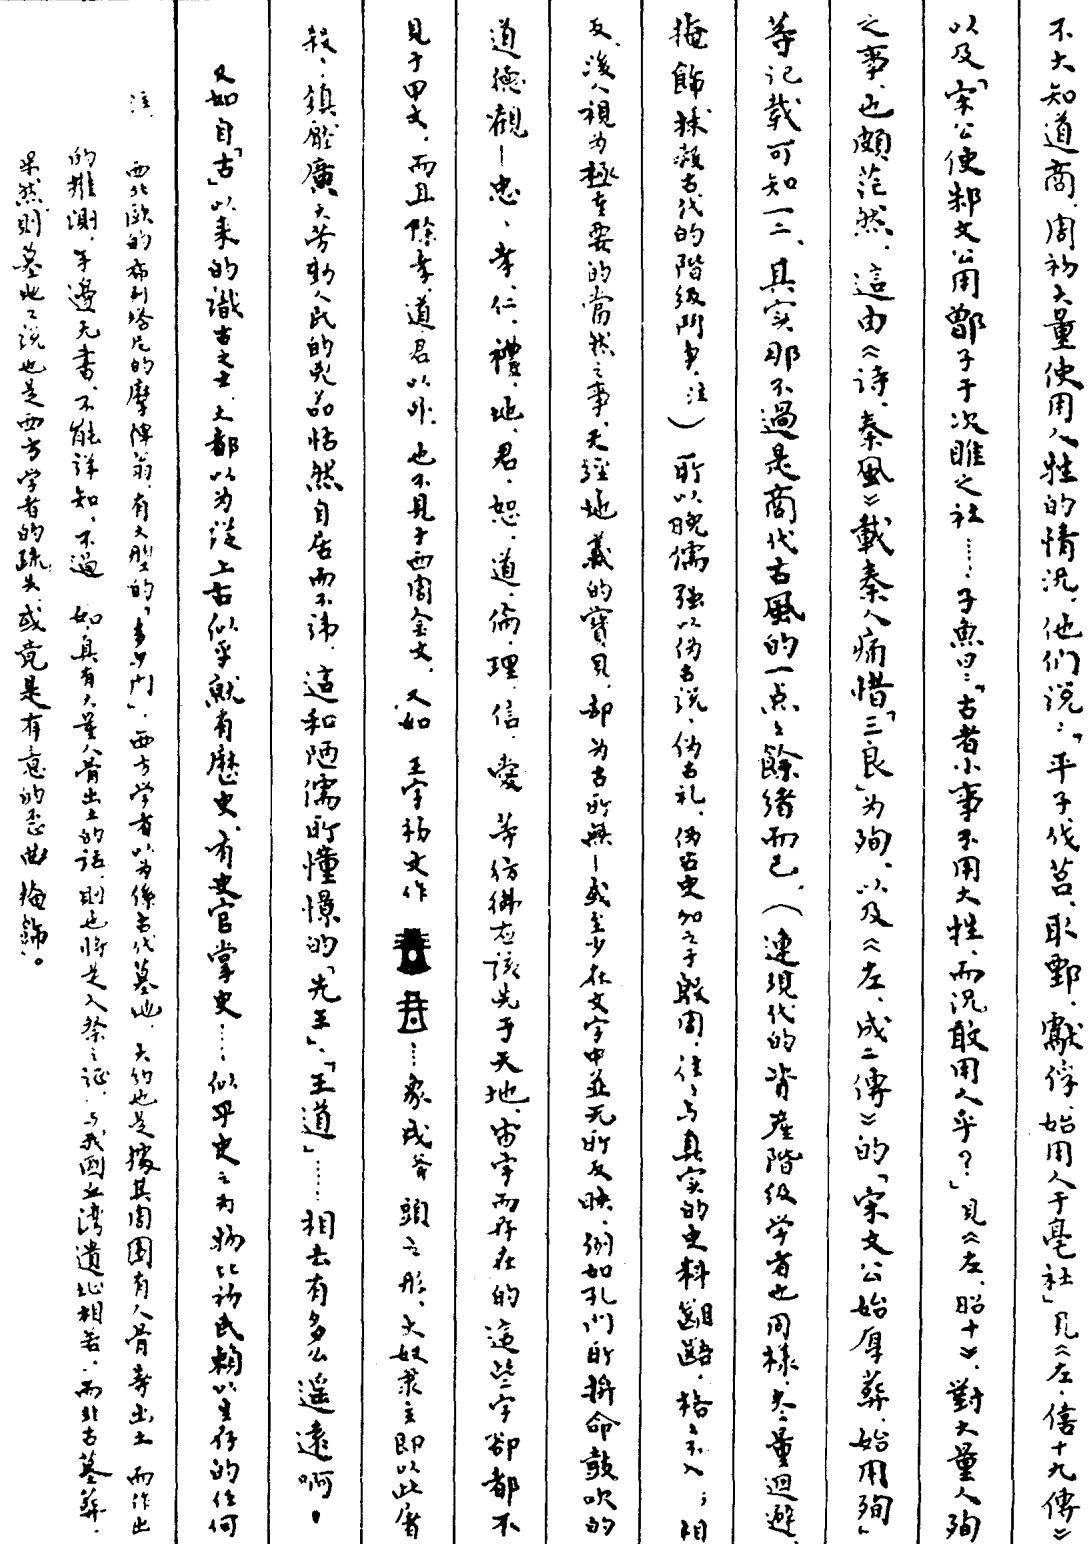 不大知道商、周初大量使用人牲的情况，他们说：「平子伐莒、取郠，獻俘，始用人于亳社」見《左、僖十九傳》
以及「宋公使邾文公用鄫子于次睢之社……子魚曰：「古者小事不用大牲，而况敢用人乎？」見《左、昭十》，對大量人殉
之事，也頗茫然，這由《詩、秦風》載秦人痛惜「三良」为殉，以及《左、成二傳》的「宋文公始厚葬，始用殉」
等记载可知一二、其实那不過是商代古風的一点点餘绪而已，（連現代的資産階级学者也同様，尽量迴避、
掩飾抹煞古代的階级鬥争，注）所以晚儒强以伪古説、伪古礼、伪古史加之于殷周，往往与真实的史料齟齬，格格不入；相
反，後人視为極重要的當然之事，天经地義的寳貝，却为古所無—或至少在文字中並无所反映，例如孔门所拚命鼓吹的
道德觀—忠、孝、仁、禮、地、君、恕、道、倫、理、信、愛 等仿彿应該先于天地、宙宇而存在的這些字卻都不
見于甲文，而且除孝、道君以外，也不見于西周金文，又如 王字初文作 ……象戌斧頭之形，大奴隶主即以此屠
殺、鎮壓廣大劳動人民的兇器恬然自居而不讳，這和陋儒所憧憬的「先王」、「王道」……相去有多么遥遠啊！
又如自「古」以来的識古之士，大都以为從上古似乎就有歷史，有史官掌史……似乎史之为物比初民賴以生存的任何
注、 西北歐的布列塔尼的摩倳翁有大型的「 门」，西方学者以为係古代墓地，大约也是據其周围有人骨等出土 而作出
的推測，手邊无書，不能详知，不過 如真有大量人骨出土的话，則也将是人祭之证，与我國丘湾遺址相若，而非古墓葬，
果然則墓地之説也是西方学者的疏失，或竟是有意的歪曲掩飾。